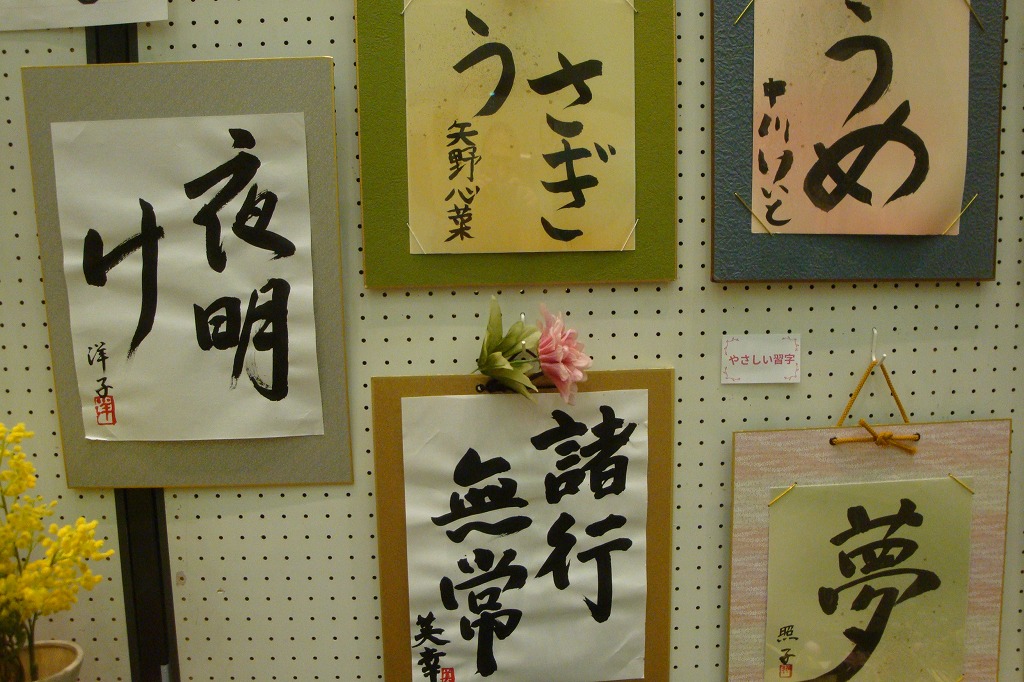 夜明
け
洋子
さぎ
う
矢野心菜
うめ
中川けいと
やさしい習字
諸行
無常
英幸
夢
照子